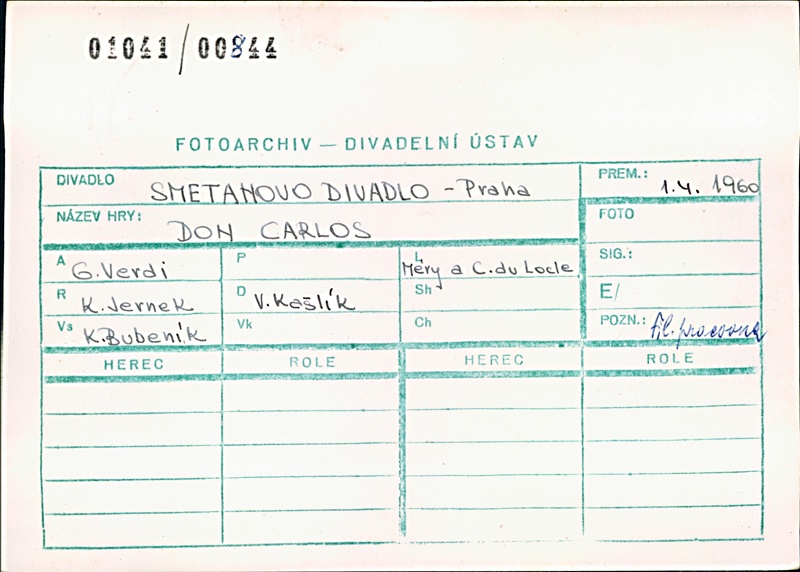 01041/00844
FOTOARCHIV — DIVADELNÍ ÚSTAV
DIVADLO SMETANOVO DIVADLO - Praha
PREM.: 1.4. 1960
NÁZEV HRY: DON CARLOS
FOTO
A G. Verdi
P
L Méry a C. du Locle
SIG.:
R K. Jernek
D V. Kašlík
Sh
E/
Vs K. Bubeník
Vk
Ch
POZN.:
HEREC ROLE HEREC ROLE